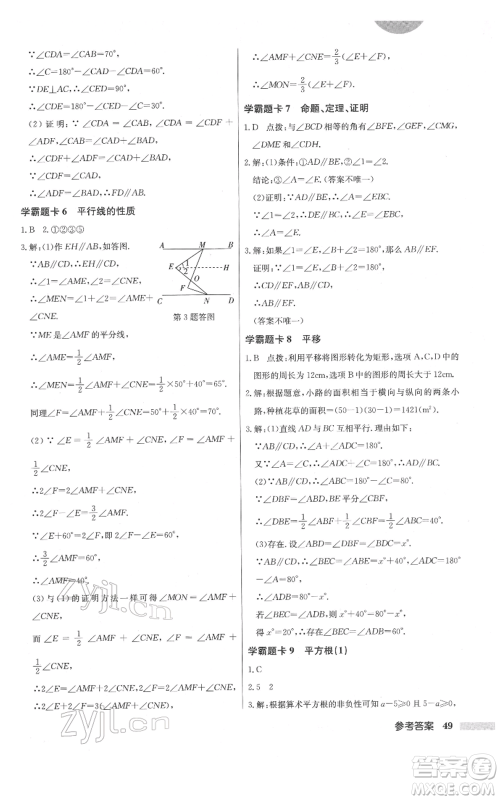 ∵∠CDA=∠CAB=70°.
∴∠C=180°−∠CDA=60°.
∵DE⊥AC,
∴∠CDE=180°−∠C−∠DEC=30°.
(2)证明:∵∠CDA=∠CAB,
∴∠DAF=180°−∠CAB,
∠ADB=180°−∠CDA.
∴∠DAF=∠ADB.
学霸题卡 6 平行线的性质
1.B 2.①③⑤
3.解:(1)作EH∥AB,如答图.
∵AB∥CD,∴EH∥CD.
∴∠1=∠AME,∠2=∠CNE.
∴∠MEN=∠1+∠2=∠AME+
∠CNE.
第3题答图
∵ME是∠AMF的平分线,
∴∠AME=1/2∠AMF.
∴∠MEN=1/2∠AMF+∠CNE=1/2×50°+40°=65°.
同理∠F=∠AMF+1/2∠CNE=50°+1/2×40°=70°.
(2)∵∠E=1/2∠AMF+∠CNE,∠F=∠AMF+
1/2∠CNE,
∴2∠F=2∠AMF+∠CNE.
∴2∠F−∠E=3/2∠AMF.
∵∠E+60°=2∠F,即2∠F−∠E=60°,
∴3/2∠AMF=60°.
∴∠AMF=40°.
(3)与(1)的证明方法一样可得∠MON=∠AMF+
∠CNE.
而∠E=1/2∠AMF+∠CNE,∠F=∠AMF+
1/2∠CNE,
∴2∠E=∠AMF+2∠CNE.
∴2∠E+2∠F=3∠AMF+3∠CNE.
∴∠AMF+∠CNE=2/3(∠E+∠F).
∴∠MON=2/3(∠E+∠F).
学霸题卡 7 命题、定理、证明
1.D 点拨:与∠BCD相等的角有∠BFE,∠AMC,
∠DME和∠CEM.
2.解:(1)条件:①AD∥BE,②∠1=∠2.
结论:③∠A=∠E.(答案不唯一)
(2)证明:∵AD∥BE,
∴∠A=∠EBC.
∵∠1=∠2,
∴DE∥BC.
∴∠E=∠EBC.
∴∠A=∠E.(答案不唯一)
3.解:如果AB∥CD,∠B+∠D=180°,那么BF∥DE.
证明:∵AB∥CD,
∴∠B=∠1.
∵∠B+∠D=180°,
∴∠1+∠D=180°.
∴BF∥DE.
(答案不唯一)
学霸题卡 8 平移
1.B 点拨:利用平移将图形转化为矩形,选项A,C,D中的
图形的周长为12cm,选项B中图形的周长大于12cm.
2.解:依题意,得小路的面积相当于横向与纵向的两条小
路,种植花草的面积=(50−1)(30−1)=1421(m²).
3.解:(1)直线AD与BC互相平行.理由如下:
∵AB∥CD,∴∠A+∠ADC=180°.
又∵∠A=∠C,∴∠ADC+∠C=180°.
∴AD∥BC.
(2)∵AB∥CD,
∴∠ABC=180°−∠C=80°.
∵∠DBF=∠ABD,BE平分∠CBF,
∴∠DBE=∠DBF+∠EBF=1/2∠ABF+
1/2∠CBF=1/2∠ABC=40°.
(3)存在.
设∠ABD=∠DBF=∠BDC=x°.
∵AB∥CD,
∴∠BEC=∠ABE=x°+40°,∠ADC=180°−
∠A=80°.
∴∠ADB=80°−x°.
若∠BEC=∠ADB,则x°+40°=80°−x°,得x°=20°.
∴存在∠BEC=∠ADB=60°.
学霸题卡 9 平方根(1)
1.C
2.5 2
3.解:根据算术平方根的非负性可知a−5≥0且5−a≥0,
参考答案 49
zyjl.cn
zyjl.cn